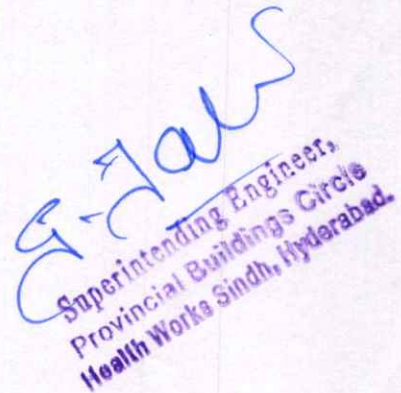 Superintending Engineer,
Provincial Buildings Circle
Health Works Sindh, Hyderabad.